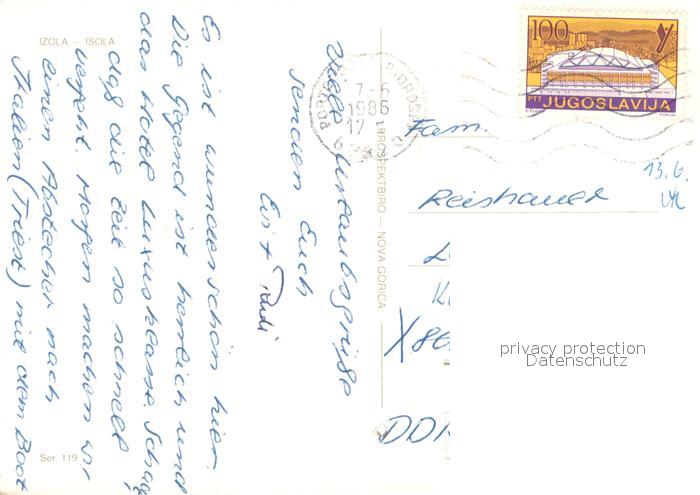 IZOLA – ISOLA
Es ist wunderschön hier.
Die Gegend ist herrlich und
das Hotel Luxusklasse. Schade
daß die Zeit so schnell
vergeht. Morgen machen wir
einen Abstecher nach
Italien (Triest) mit dem Boot
Viele Urlaubsgrüße
senden Euch
Evi + Rudi
Ser. 119
BIROSPEKTBIRO – NOVA GORICA
7-6
1986
17
100
PTT JUGOSLAVIJA
Fam.
Reishauer
13.6.
X 80
DDR
privacy protection
Datenschutz